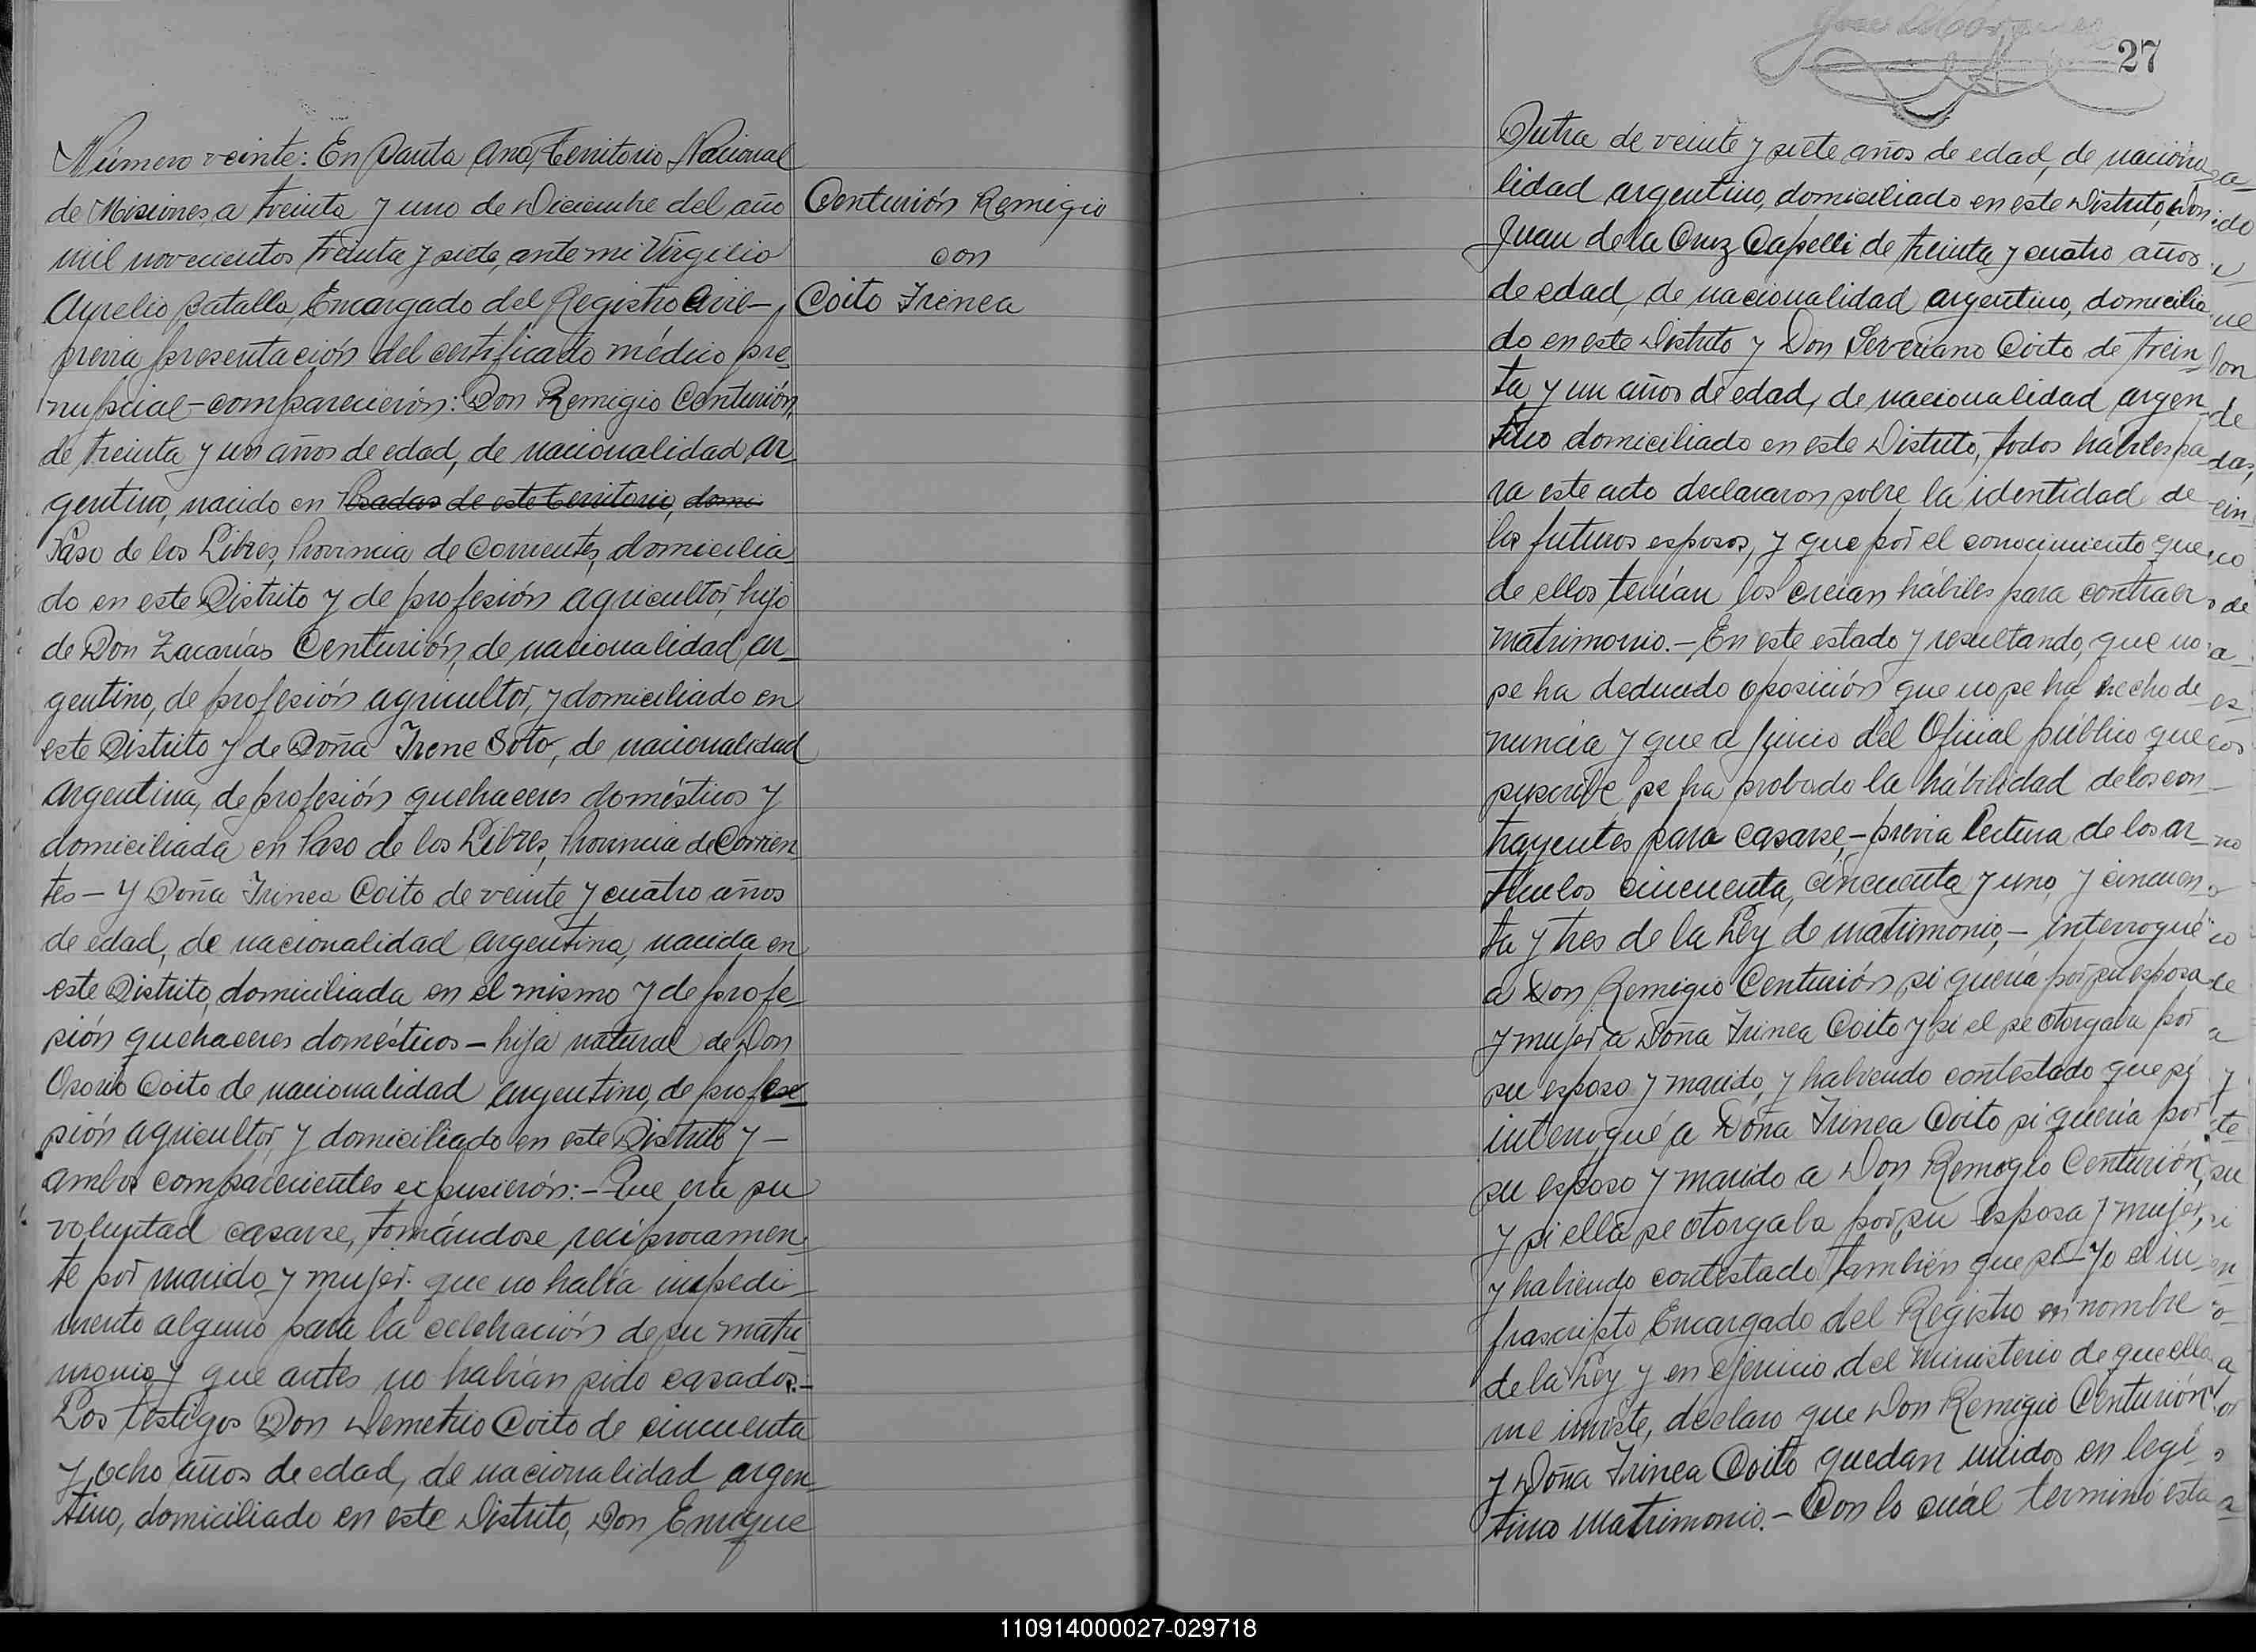 Número veinte: En Santa Ana, Territorio Nacional
de Misiones, a treinta y uno de Diciembre del año
mil novecientos treinta y siete, ante mi Virgilio
Aurelio Batalla, Encargado del Registro Civil-
previa presentación del certificado médico pre-
nupcial-comparecieron: Don Remigio Centurión,
de treinta y un años de edad, de nacionalidad ar-
gentino, nacido en Posadas de este territorio, domi-
Paso de los Libres, Provincia de Corrientes, domicilia-
do en este Distrito y de profesión agricultor, hijo
de Don Zacarías Centurión, de nacionalidad ar-
gentino, de profesión agricultor, y domiciliado en
este Distrito y de Doña Irene Soto, de nacionalidad
argentina, de profesión quehaceres domésticos y
domiciliada en Paso de los Libres, Provincia de Corrien-
tes - Y Doña Irinea Coito de veinte y cuatro años
de edad, de nacionalidad argentina, nacida en
este Distrito, domiciliada en el mismo y de profe-
sión quehaceres domésticos - hija natural de Don
Osorio Coito de nacionalidad argentino, de profe-
sión agricultor, y domiciliado en este Distrito y -
ambos comparecientes expusieron: - Que era su
voluntad casarse, tomándose recíprocamen-
te por marido y mujer. que no había impedi-
mento alguno para la celebración de su matri-
monio y que antes no habían sido casados.-
Los testigos Don Demetrio Coito de cincuenta
y ocho años de edad, de nacionalidad argen-
tino, domiciliado en este Distrito, Don Enrique
Centurión Remigio
con
Coito Irinea
27
Dutra de veinte y siete años de edad, de naciona-
lidad argentino, domiciliado en este Distrito, Don
Juan de la Cruz Capelli de treinta y cuatro años
de edad, de nacionalidad argentino, domicilia-
do en este Distrito y Don Severiano Coito de trein-
ta y un años de edad, de nacionalidad argen-
tino domiciliado en este Distrito, todos hábiles pa-
ra este acto declararon sobre la identidad de
los futuros esposos, y que por el conocimiento que
de ellos tenían los creían hábiles para contraer
matrimonio.- En este estado y resultando, que no
se ha deducido oposición que no se ha hecho de-
nuncia y que a juicio del Oficial público que
suscribe se ha probado la habilidad de los con-
trayentes para casarse, - previa lectura de los ar-
tículos cincuenta, cincuenta y uno, y cincuen-
ta y tres de la Ley de matrimonio, - interrogué
a Don Remigio Centurión si quería por su esposa
y mujer a Doña Irinea Coito y si el se otorgaba por
su esposo y marido, y habiendo contestado que si
interrogué a Doña Irinea Coito si quería por
su esposo y marido a Don Remigio Centurión,
y si ella se otorgaba por su esposa y mujer,
y habiendo contestado también que si - Yo el in-
frascripto Encargado del Registro en nombre
de la Ley y en ejercicio del Ministerio de que ella
me inviste, declaro que Don Remigio Centurión
y Doña Irinea Coito quedan unidos en legí-
timo matrimonio. - Con lo cuál terminó esta
110914000027-029718